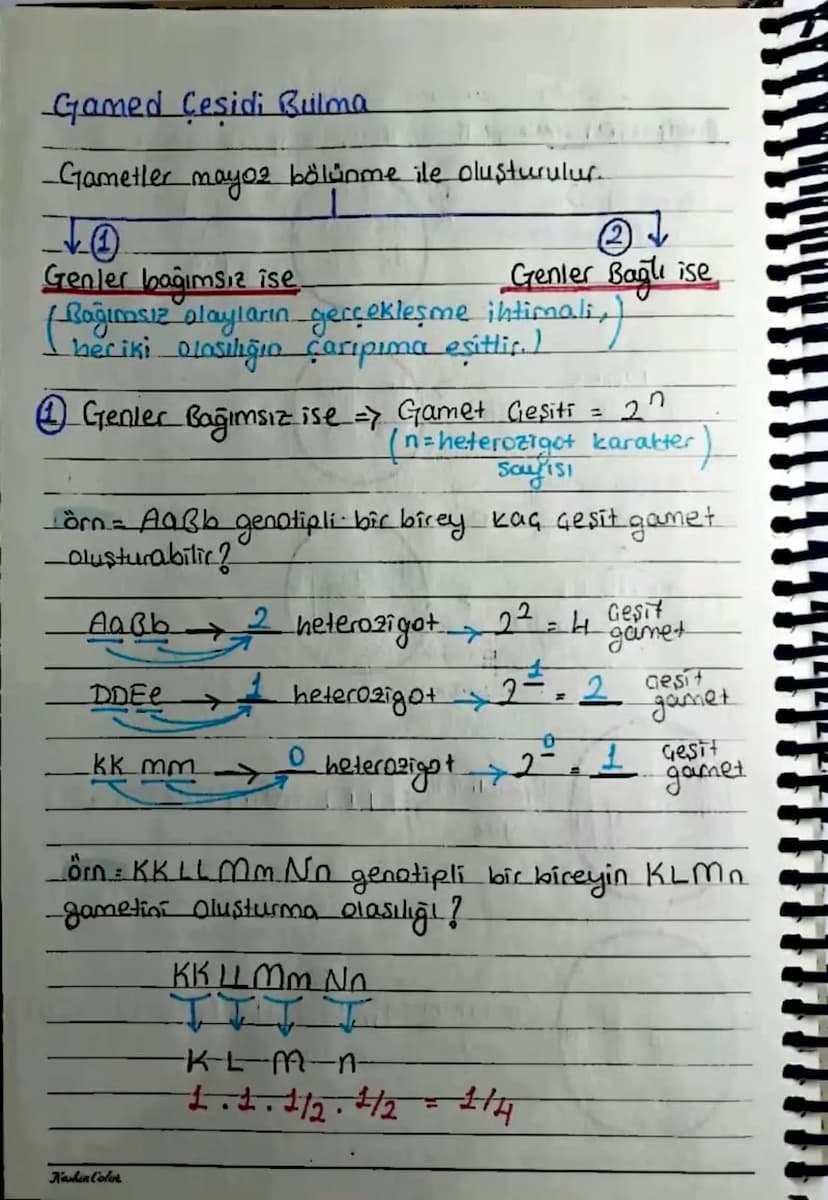 Gamed Çeşidi Bulma
Gametler mayoz bölünme ile oluşturulur.
1 2
Genler bağımsız ise Genler Bağlı ise
(Bağımsız olayların gerçekleşme ihtimali,
her iki olasılığın çarpıma eşittir.)
1 Genler Bağımsız ise => Gamet Çeşiti = 2ⁿ
(n=heterozigot karakter
sayısı)
örn = AaBb genotipli bir birey kaç çeşit gamet
oluşturabilir?
AaBb → 2 heterozigot → 2² = 4 çeşit gamet
DDEe → 1 heterozigot → 2¹ = 2 çeşit gamet
kk mm → 0 heterozigot → 2⁰ = 1 çeşit gamet
örn = KKLLMmNn genotipli bir bireyin KLMn
gametini oluşturma olasılığı?
KKLLMmNn
K-L-M-n
1 . 1 . 1/2 . 1/2 = 1/4